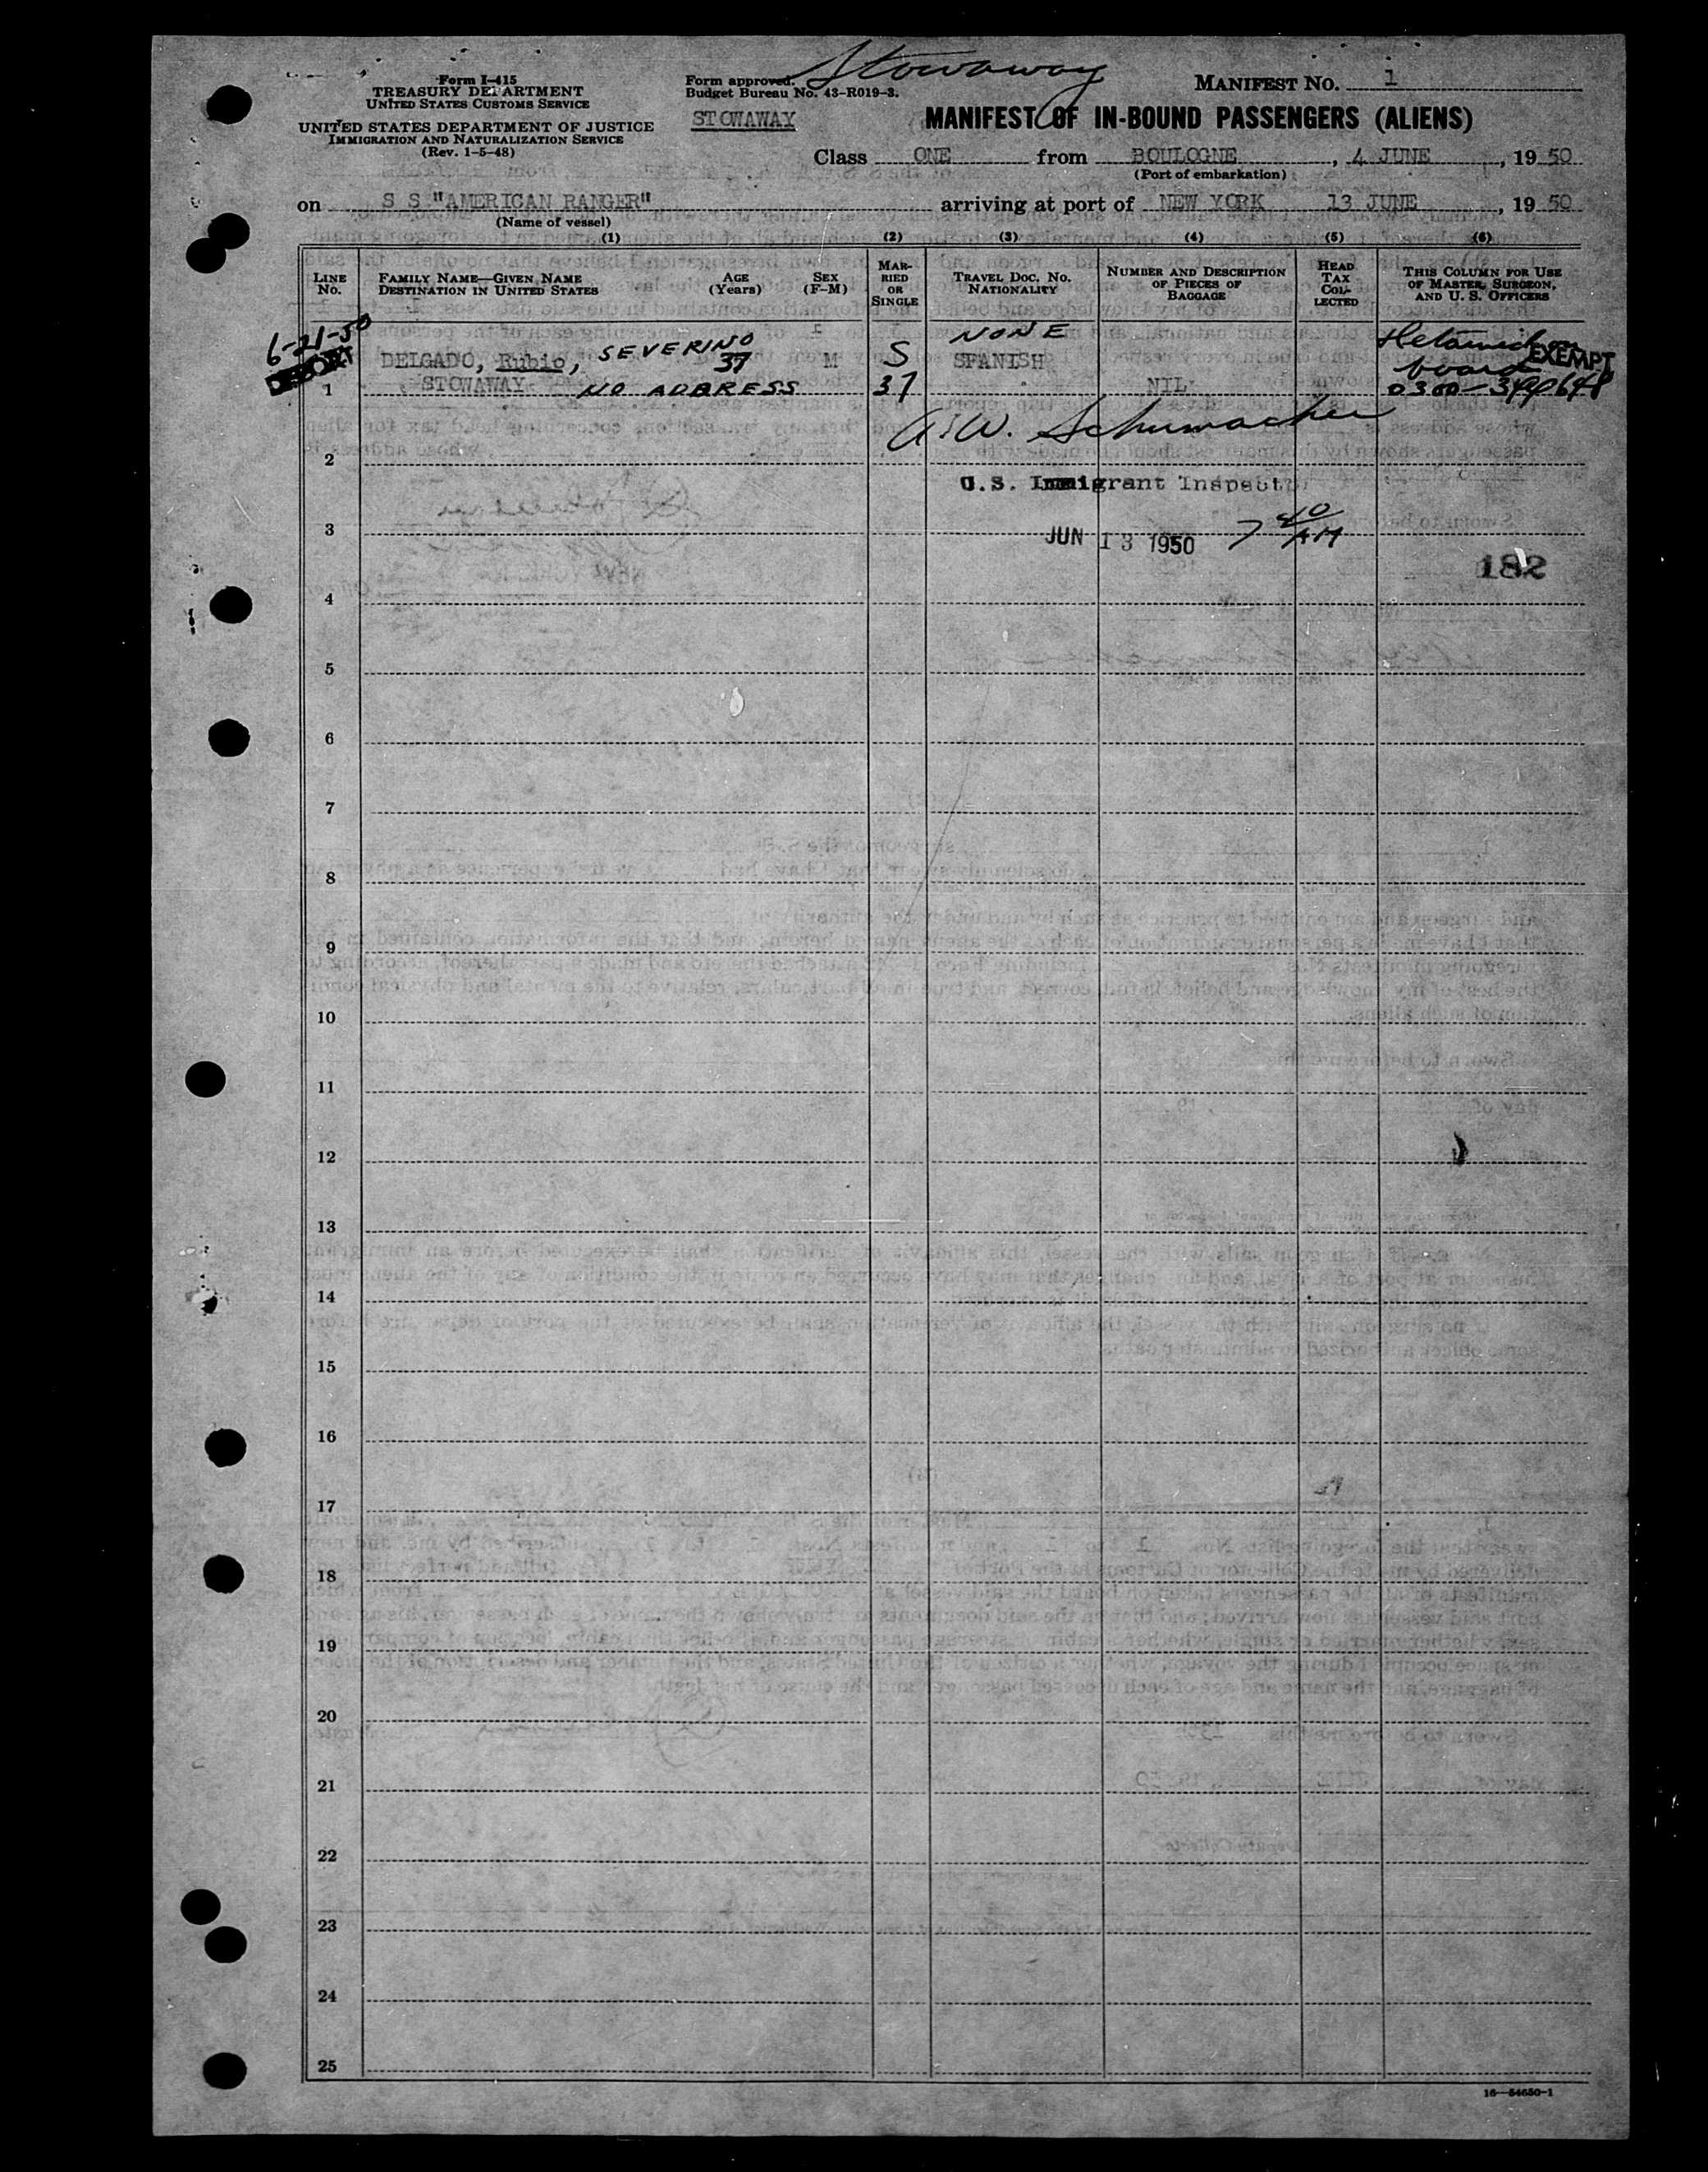 Stowaway
Form I-415
TREASURY DEPARTMENT
UNITED STATES CUSTOMS SERVICE
UNITED STATES DEPARTMENT OF JUSTICE
IMMIGRATION AND NATURALIZATION SERVICE
(Rev. 1-5-48)
Form approved.
Budget Bureau No. 43-R019-3.
STOWAWAY
MANIFEST NO. 1
MANIFEST OF IN-BOUND PASSENGERS (ALIENS)
Class ONE from BOULOGNE, 4 JUNE, 19 50
(Port of embarkation)
on S S "AMERICAN RANGER" arriving at port of NEW YORK 13 JUNE, 19 50
(Name of vessel)
(1) (2) (3) (4) (5) (6)
LINE NO.
FAMILY NAME—GIVEN NAME
DESTINATION IN UNITED STATES
AGE (Years)
SEX (F-M)
MARRIED OR SINGLE
TRAVEL DOC. NO.
NATIONALITY
NUMBER AND DESCRIPTION OF PIECES OF BAGGAGE
HEAD TAX COLLECTED
THIS COLUMN FOR USE OF MASTER, SURGEON, AND U. S. OFFICERS
6-21-50
DEPORT
NONE
DELGADO, Rubio, SEVERINO 37 M S SPANISH
EXEMPT
board
1 STOWAWAY NO ADDRESS 37 NIL
0300-
A.W. Schumacher
2
U.S. Immigrant Inspector
3
JUN 13 1950 7 40 AM
182
4
5
6
7
8
9
10
11
12
13
14
15
16
17
18
19
20
21
22
23
24
25
16—54650-1